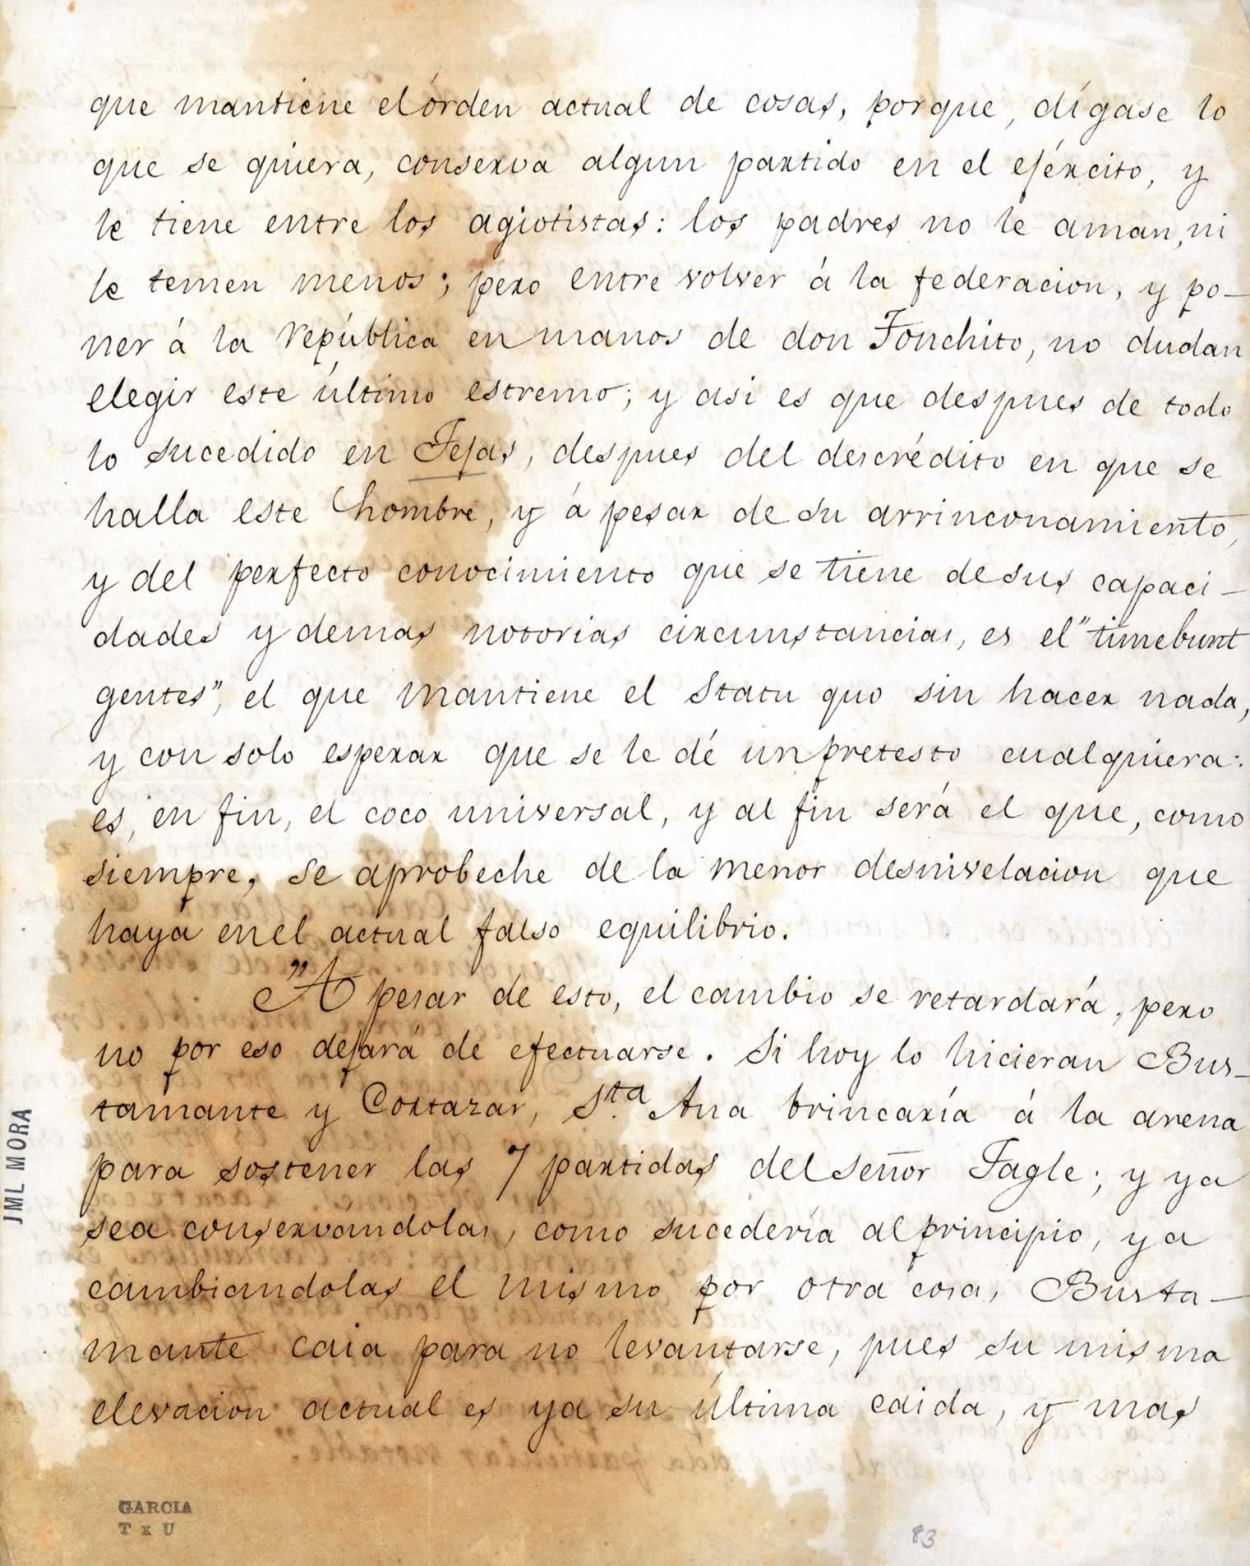 que mantiene el órden actual de cosas, porque, dígase lo
que se quiera, conserva algun partido en el ejército, y
le tiene entre los agiotistas: los padres no le aman, ni
le temen menos; pero entre volver á la federacion, y po-
ner á la república en manos de don Tonchito, no dudan
elegir este último estremo; y asi es que despues de todo
lo sucedido en Tejas, despues del descrédito en que se
halla este hombre, y á pesar de su arrinconamiento,
y del perfecto conocimiento que se tiene de sus capaci-
dades y demas notorias circunstancias, es el "timebunt
gentes", el que mantiene el Statu quo sin hacer nada,
y con solo esperar que se le dé un pretesto cualquiera:
es, en fin, el coco universal, y al fin será el que, como
siempre, se aprobeche de la menor desnivelacion que
haya en el actual falso equilibrio.
"A pesar de esto, el cambio se retardará, pero
no por eso dejará de efectuarse. Si hoy lo hicieran Bus-
tamante y Cortazar, Sta Ana brincaría á la arena
para sostener las 7 partidas del señor Tagle; y ya
sea conservándolas, como sucedería al principio, ya
cambiandolas el mismo por otra cosa, Busta-
mante caia para no levantarse, pues su misma
elevacion actual es ya su última caida, y mas
JML MORA
GARCIA
T x U
83